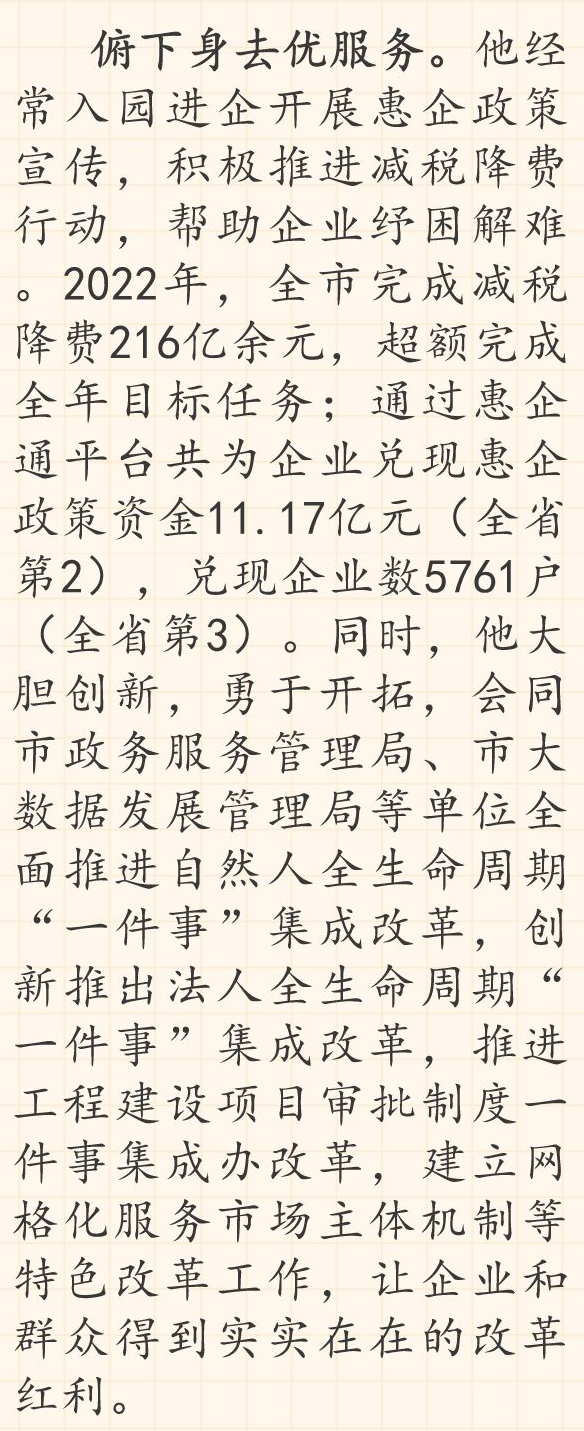 俯下身去优服务。他经
常入园进企开展惠企政策
宣传，积极推进减税降费
行动，帮助企业纾困解难
。2022年，全市完成减税
降费216亿余元，超额完成
全年目标任务；通过惠企
通平台共为企业兑现惠企
政策资金11.17亿元（全省
第2），兑现企业数5761户
（全省第3）。同时，他大
胆创新，勇于开拓，会同
市政务服务管理局、市大
数据发展管理局等单位全
面推进自然人全生命周期
“一件事”集成改革，创
新推出法人全生命周期“
一件事”集成改革，推进
工程建设项目审批制度一
件事集成办改革，建立网
格化服务市场主体机制等
特色改革工作，让企业和
群众得到实实在在的改革
红利。